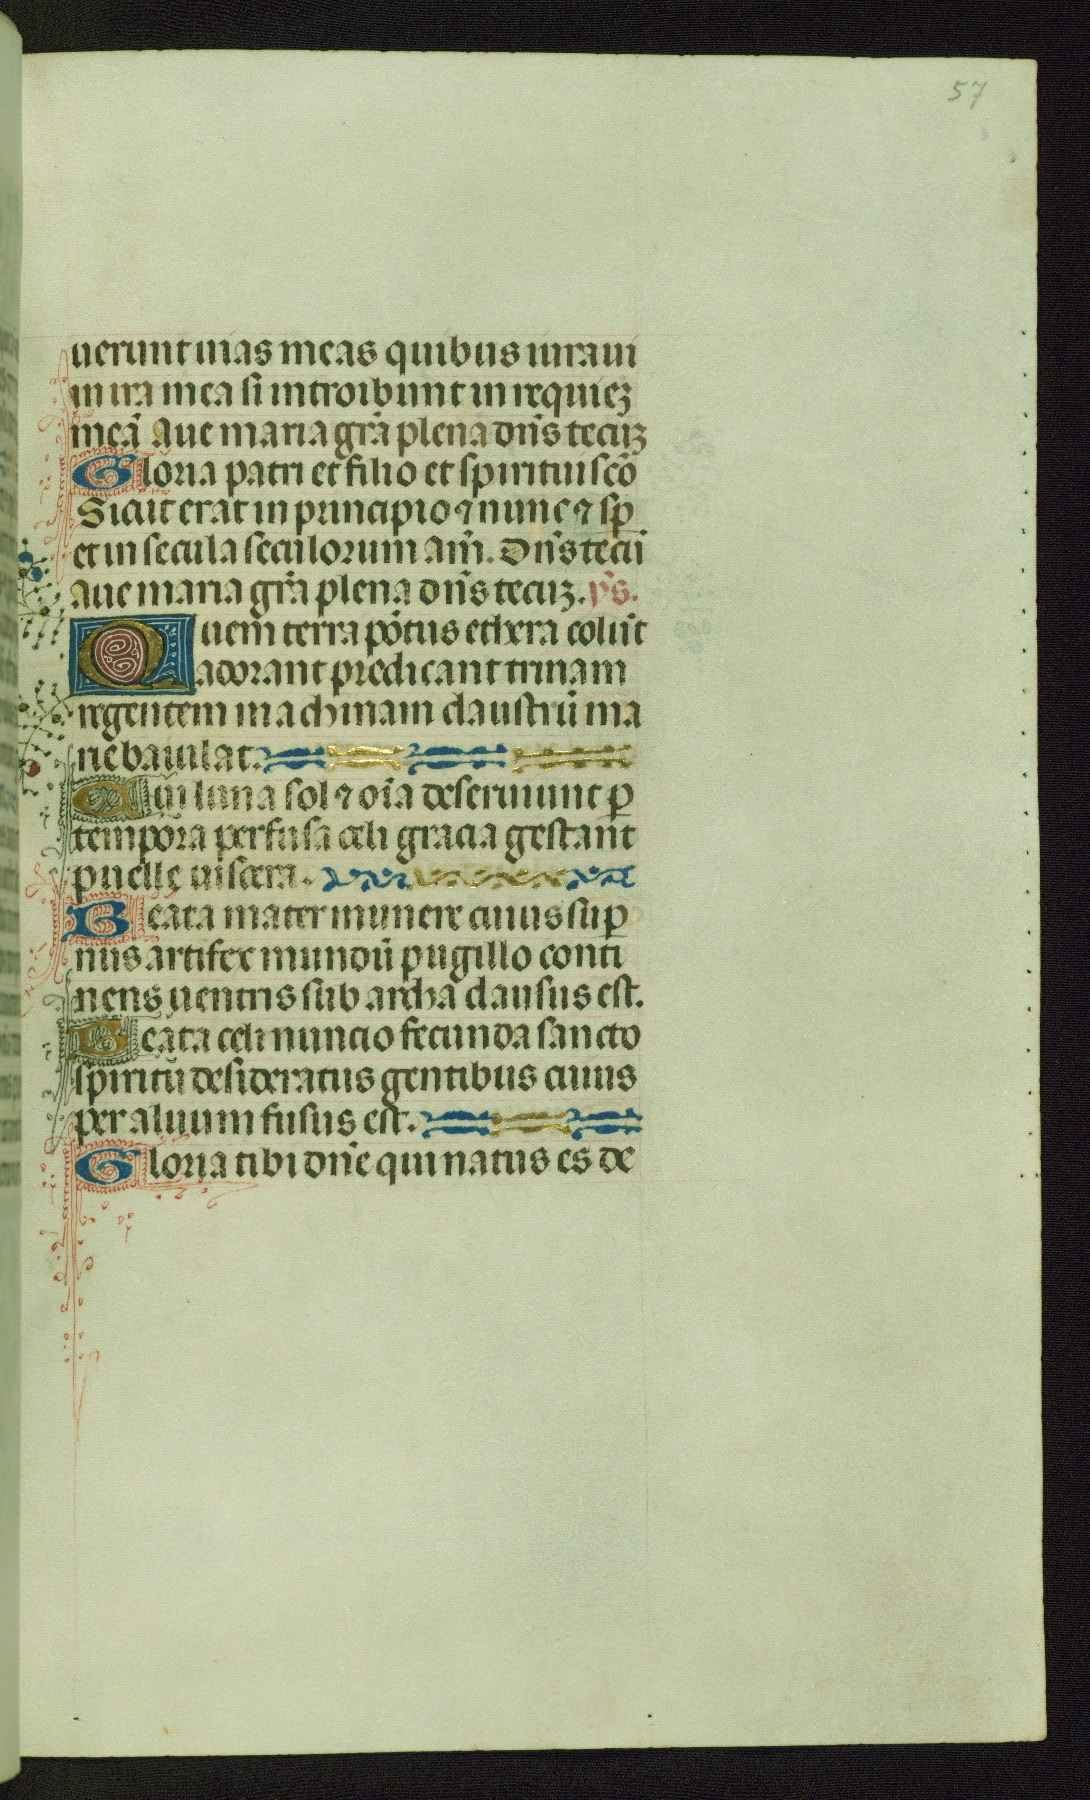 57
uerunt uias meas quibus iuraui
in ira mea si introibunt in requieꝫ
meā aue maria gr̄a plena dn̄s tecuꝫ
Gloria patri et filio et spiritui scō
Sicut erat in principio ⁊ nunc ⁊ sp̄
et in secula seculorum am̄. Dn̄s tecū
aue maria gr̄a plena dn̄s tecuꝫ. ẏs.
Quem terra pōtus ethera colūt
adorant predicant trinam
regentem machinam claustrū ma
rie baiulat.
Cui luna sol ⁊ oīa deseruiunt ꝑ
tempora perfusa celi gracia gestant
puelle uiscera.
Beata mater munere cuius suꝑ
nus artifex mundū pugillo conti
nens uentris sub archa clausus est.
Beata celi nuncio fecunda sancto
spiritū desideratus gentibus cuius
per aluum fusus est.
Gloria tibi dn̄e qui natus es de